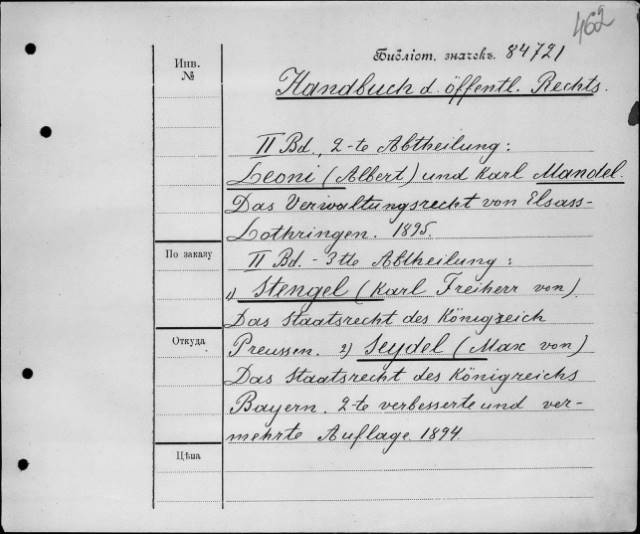 462
Библіот. значекъ. 84721
Инв.
№
Handbuch d. öffentl. Rechts.
II Bd., 2-te Abtheilung:
Leoni (Albert) und Karl Mandel.
Das Verwaltungsrecht von Elsass-
Lothringen. 1895.
По заказу
II Bd. - 3tte Abtheilung:
1) Stengel (Karl Freiherr von).
Das Staatsrecht des Königreich
Откуда
Preussen. 2) Seydel (Max von)
Das Staatsrecht des Königreichs
Bayern. 2-te verbesserte und ver-
mehrte Auflage. 1894
Цѣна